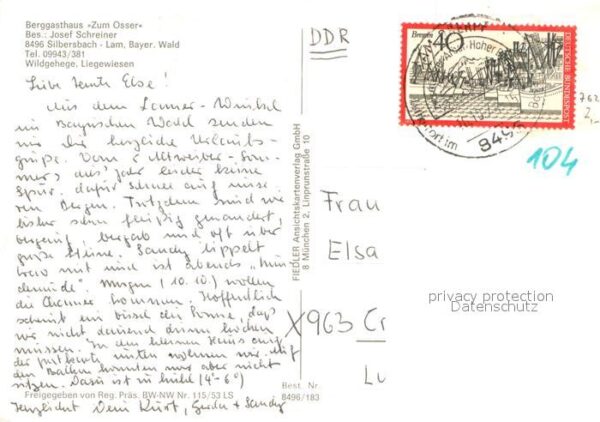 Berggasthaus »Zum Osser«
Bes.: Josef Schreiner
8496 Silbersbach - Lam, Bayer. Wald
Tel. 09943/381
Wildgehege. Liegewiesen
Liebe Tante Else!
Aus dem Lamer-Winkel
im Bayrischen Wald senden
wir Dir herzliche Urlaubs-
grüße. Vom Altweiber-Som-
mers dies' Jahr leider keine
Spur, dafür Schnee auf unse-
ren Bergen. Trotzdem sind wir
bisher sehr fleißig gewandert,
bergauf, bergab und oft über
große Steine. Sandy tippelt
brav mit und ist abends "hun-
demüde". Morgen (10.10.) wollen
die kommen. Hoffentlich
scheint ein bissel die Sonne, daß
wir nicht dauernd drin hocken
müssen. In dem kleinen Haus auf
der Postkarte unten wohnen wir. Auf
den Balkon konnten wir aber nicht
sitzen. Dazu ist zu kühl (4°-6°)
Freigegeben von Reg. Präs. BW-NW Nr. 115/53 LS
Herzlichst Dein Kurt, Gerda + Sandy
FIEDLER Ansichtskartenverlag GmbH
8 München 2, Linprunstraße 10
Best Nr.
8496/183
DDR
Bremen
40
DEUTSCHE BUNDESPOST
Hoher
8496
762
2,-
104
Frau
Elsa
X963 Cr
Lu
privacy protection
Datenschutz